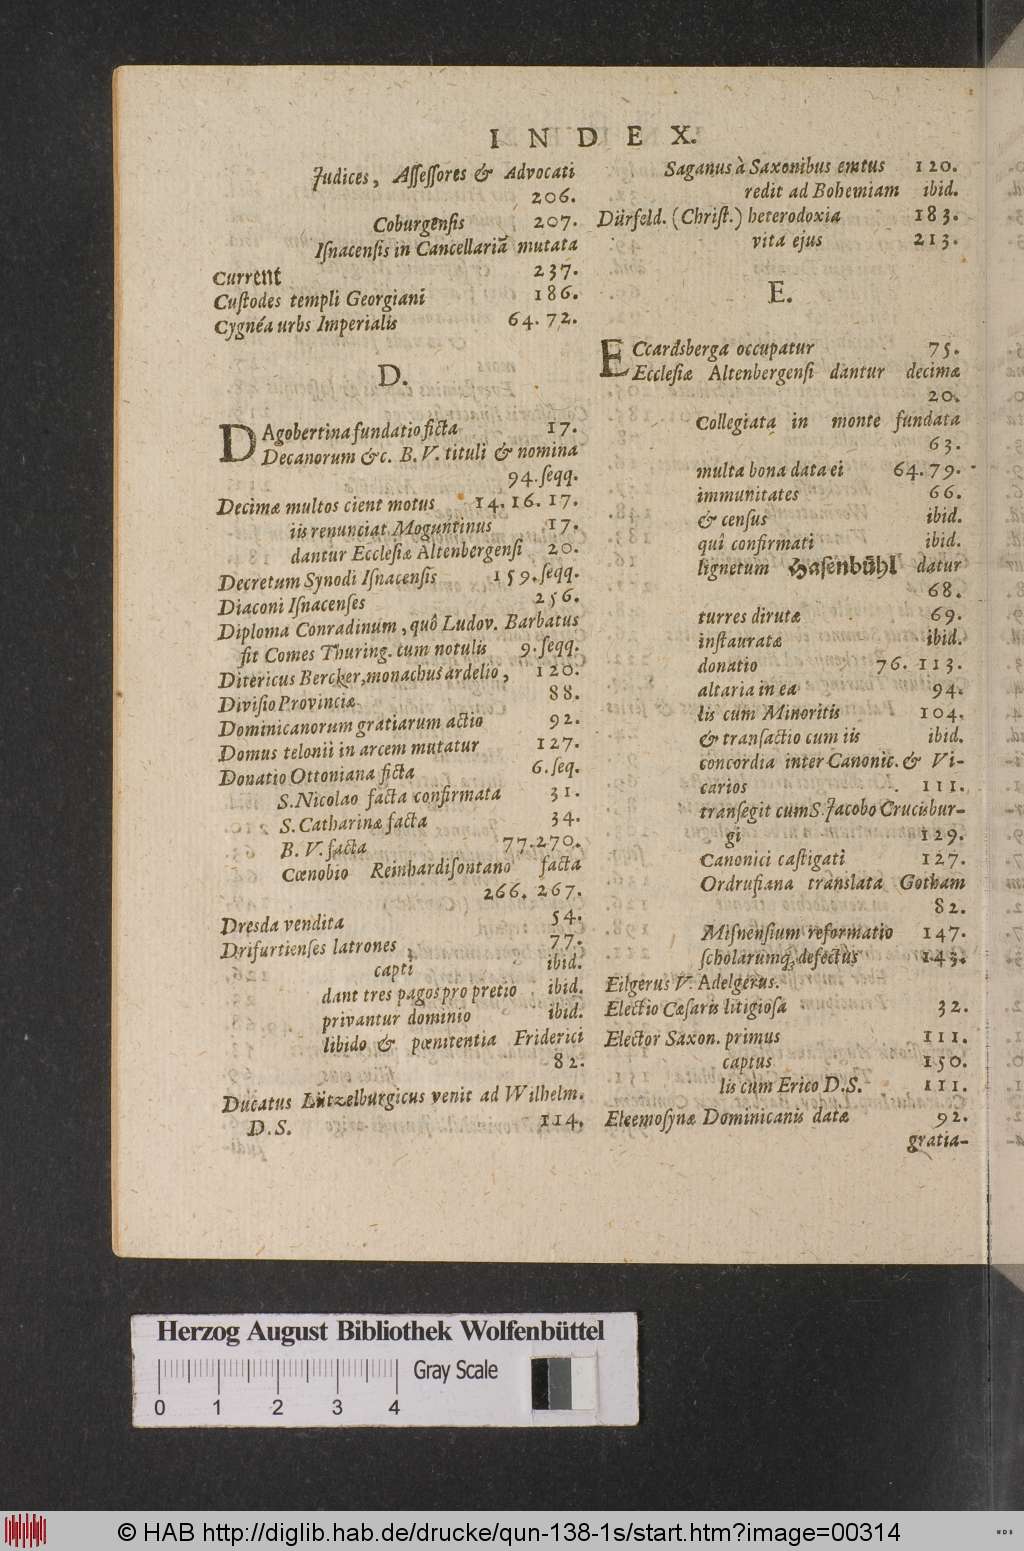 INDEX.
Judices, Aſſeſſores & Advocati
206.
Coburgenſis 207.
Iſnacenſis in Cancellariā mutata
Current 237.
Cuſtodes templi Georgiani 186.
Cygnéa urbs Imperialis 64. 72.
D.
DAgobertina fundatio ficta 17.
Decanorum &c. B. V. tituli & nomina
94. ſeqq.
Decimæ multos cient motus 14. 16. 17.
iis renunciat Moguntinus 17.
dantur Eccleſiæ Altenbergenſi 20.
Decretum Synodi Iſnacenſis 159. ſeqq.
Diaconi Iſnacenſes 256.
Diploma Conradinum, quô Ludov. Barbatus
fit Comes Thuring. cum notulis 9. ſeqq.
Ditericus Bercker, monachus ardelio, 120.
Diviſio Provinciæ 88.
Dominicanorum gratiarum actio 92.
Domus telonii in arcem mutatur 127.
Donatio Ottoniana ficta 6. ſeq.
S. Nicolao facta confirmata 31.
S. Catharinæ facta 34.
B. V. facta 77. 270.
Cœnobio Reinhardiſontano facta
266. 267.
Dresda vendita 54.
Drifurtienſes latrones 77.
capti ibid.
dant tres pagos pro pretio ibid.
privantur dominio ibid.
libido & pœnitentia Friderici
82.
Ducatus Lützelburgicus venit ad Wilhelm.
D. S. 114.
Saganus à Saxonibus emtus 120.
redit ad Bohemiam ibid.
Dürfeld. (Chriſt.) heterodoxia 183.
vita ejus 213.
E.
ECcardsberga occupatur 75.
Eccleſiæ Altenbergenſi dantur decimæ
20.
Collegiata in monte fundata
63.
multa bona data ei 64. 79.
immunitates 66.
& cenſus ibid.
quî confirmati ibid.
lignetum Haſenbühl datur
68.
turres dirutæ 69.
inſtauratæ ibid.
donatio 76. 113.
altaria in ea 94.
lis cum Minoritis 104.
& tranſactio cum iis ibid.
concordia inter Canonic. & Vi-
carios 111.
tranſegit cum S. Jacobo Crucisbur-
gi 129.
Canonici caſtigati 127.
Ordrufiana translata Gotham
82.
Miſnenſium reformatio 147.
ſcholarumq; defectus 143.
Eilgerus V. Adelgerus.
Electio Cæſaris litigioſa 32.
Elector Saxon. primus 111.
captus 150.
lis cum Erico D. S. 111.
Eleemoſynæ Dominicanis datæ 92.
gratia-
Herzog August Bibliothek Wolfenbüttel
Gray Scale
0 1 2 3 4
© HAB http://diglib.hab.de/drucke/qun-138-1s/start.htm?image=00314